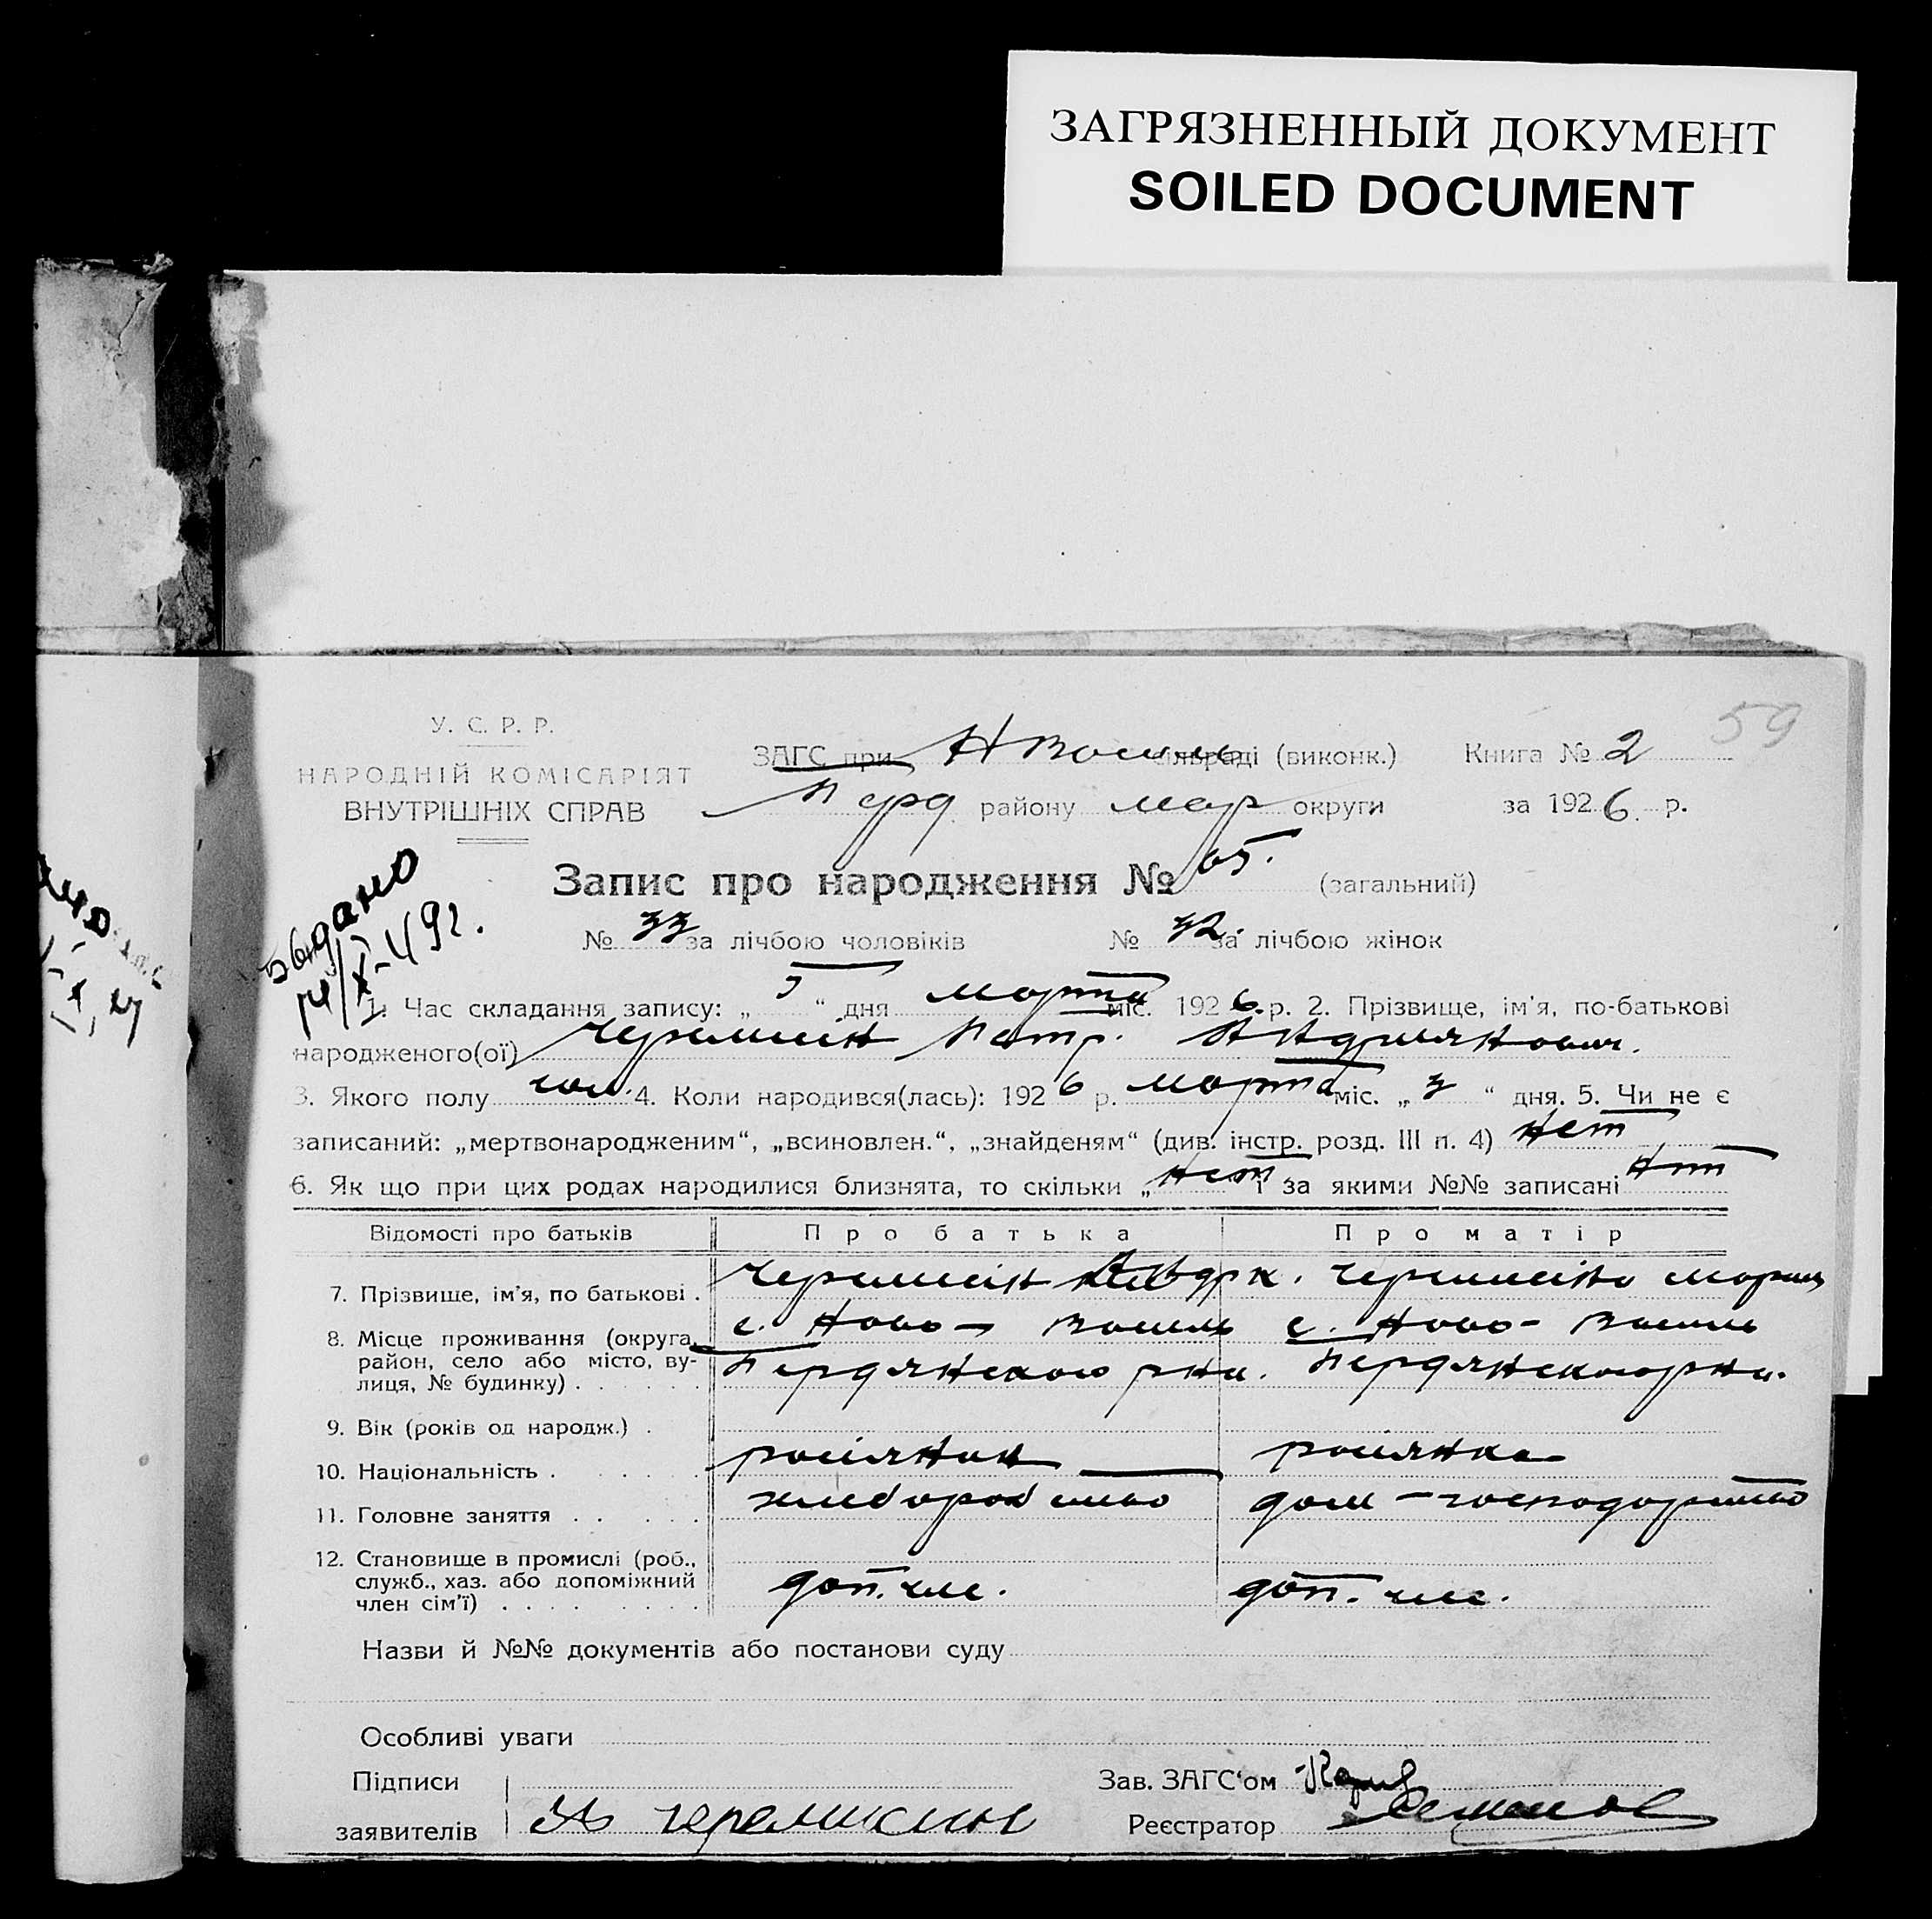 ЗАГРЯЗНЕННЫЙ ДОКУМЕНТ
SOILED DOCUMENT
59
У. С. Р. Р.
НАРОДНІЙ КОМІСАРІЯТ
ВНУТРІШНІХ СПРАВ
ЗАГС при сільраді (виконк.) Книга № 2
району Мар округи за 1926 р.
Запис про народження № 65. (загальний)
№ 33 за лічбою чоловіків № 32. за лічбою жінок
1. Час складання запису: „ “ дня марта міс. 1926 р. 2. Прізвище, ім'я, по-батькові
народженого(ої) Черемисін Петр.
3. Якого полу чол. 4. Коли народився(лась): 1926 р. марта міс. „3“ дня. 5. Чи не є
записаний: „мертвонародженим“, „всиновлен.“, „знайденям“ (див. інстр. розд. III п. 4) нет
6. Як що при цих родах народилися близнята, то скільки „нет і за якими №№ записані нет
Відомості про батьків Про батька Про матір
7. Прізвище, ім'я, по батькові . Черемисін Андрк. Черемисіна Мария
8. Місце проживання (округа, район, село або місто, вулиця, № будинку) . с. Ново-Васил с. Ново-Васил
Бердянского рна. Бердянского рна.
9. Вік (років од народж.) .
10. Національність . росіянин росіянка
11. Головне заняття . . хлеборобство дом-господарство
12. Становище в промислі (роб., служб., хаз. або допоміжний член сім'ї) доп. чле. доп. чле.
Назви й №№ документів або постанови суду
Особливі уваги
Підписи
заявителів Черемисин
Зав. ЗАГС'ом
Реєстратор Семенов